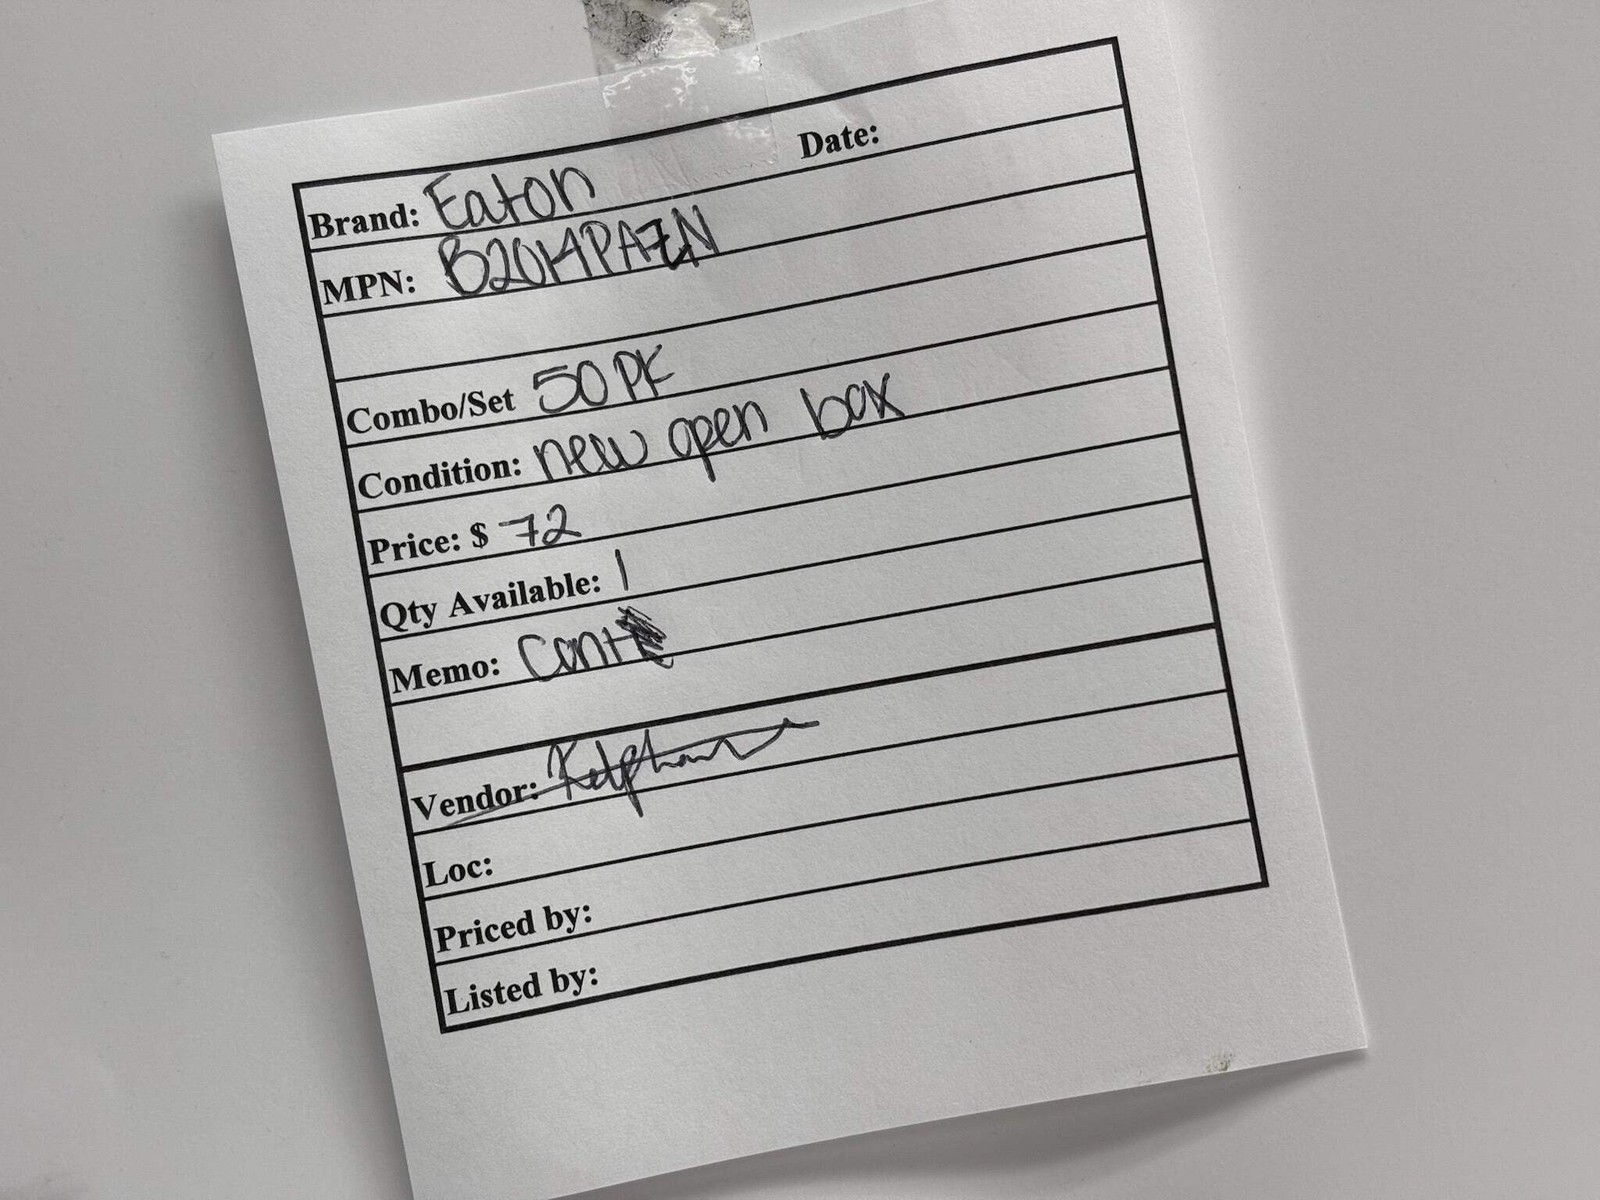 Brand: Eaton Date:
MPN: B2014PAZN
Combo/Set 50PK
Condition: new open box
Price: $ 72
Qty Available: 1
Memo:
Vendor:
Loc:
Priced by:
Listed by: